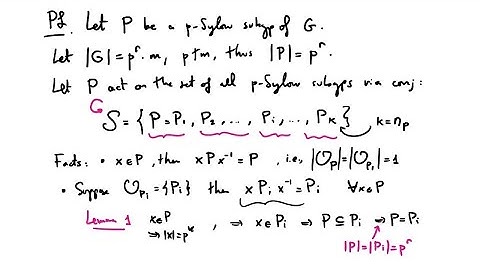 Pf. Let P be a p-Sylow subgp of G.
Let |G| = pⁿ·m, p∤m, thus |P| = pⁿ.
Let P act on the set of all p-Sylow subgps via conj:
G S = { P = P₁, P₂, ..., Pᵢ, ..., Pₖ } k = nₚ
Facts: • x∈P, then xPx⁻¹ = P, i.e., |O_P| = |O_P₁| = 1
• Suppose O_Pᵢ = {Pᵢ} then xPᵢx⁻¹ = Pᵢ ∀x∈P
Lemma 1 x∈P ⇒ x∈Pᵢ ⇒ P⊆Pᵢ ⇒ P=Pᵢ
⇒ |x| = pᵏ,
|P|=|Pᵢ|=pⁿ